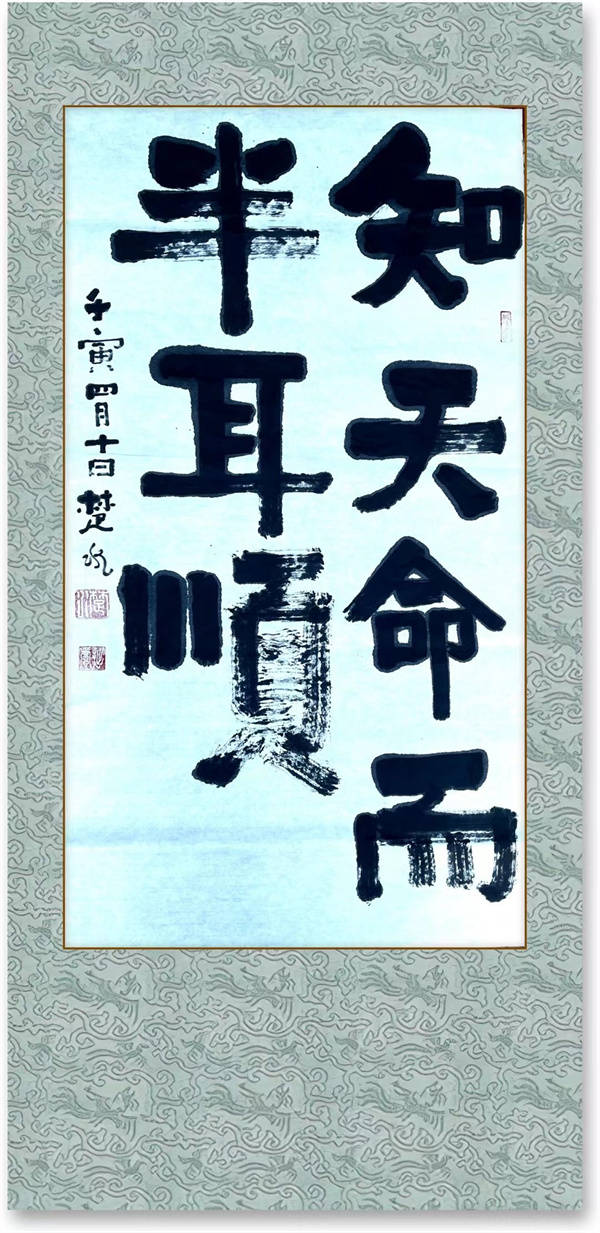 知天命而
半耳順
壬寅四月十日楚